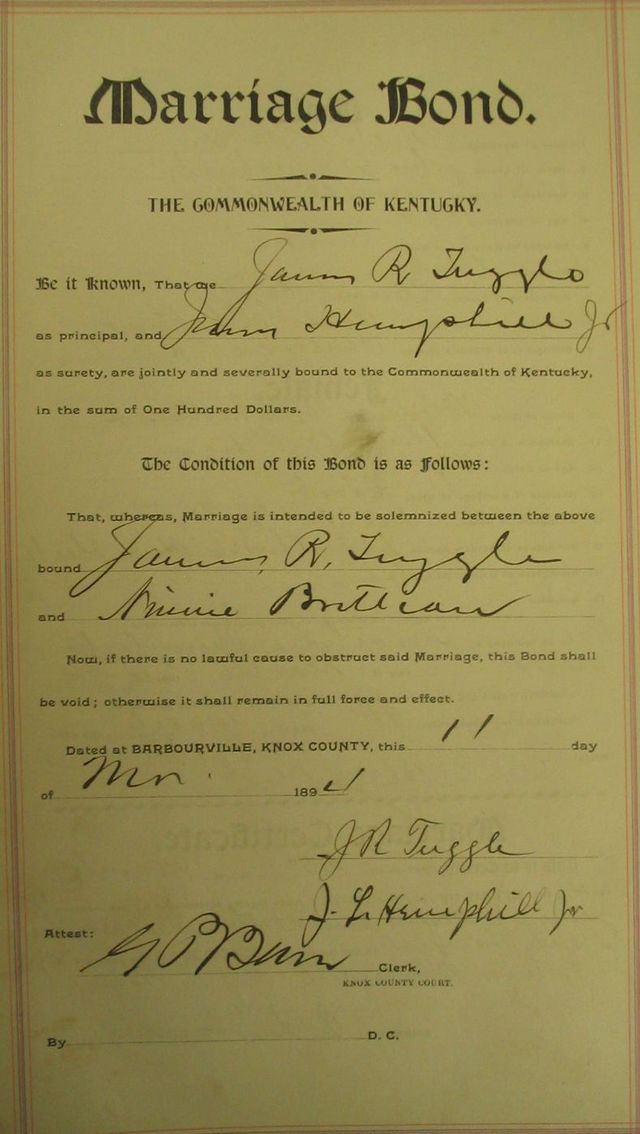 Marriage Bond.
THE COMMONWEALTH OF KENTUCKY.
Be it Known, That we James R Tuggle
as principal, and Hemphill Jr
as surety, are jointly and severally bound to the Commonwealth of Kentucky,
in the sum of One Hundred Dollars.
The Condition of this Bond is as Follows:
That, whereas, Marriage is intended to be solemnized between the above
bound James R. Tuggle
and Minnie Brittian
Now, if there is no lawful cause to obstruct said Marriage, this Bond shall
be void; otherwise it shall remain in full force and effect.
Dated at BARBOURVILLE, KNOX COUNTY, this 11 day
of 1894
J R Tuggle
J. L. Hemphill Jr
Attest:
Clerk,
KNOX COUNTY COURT.
By D. C.